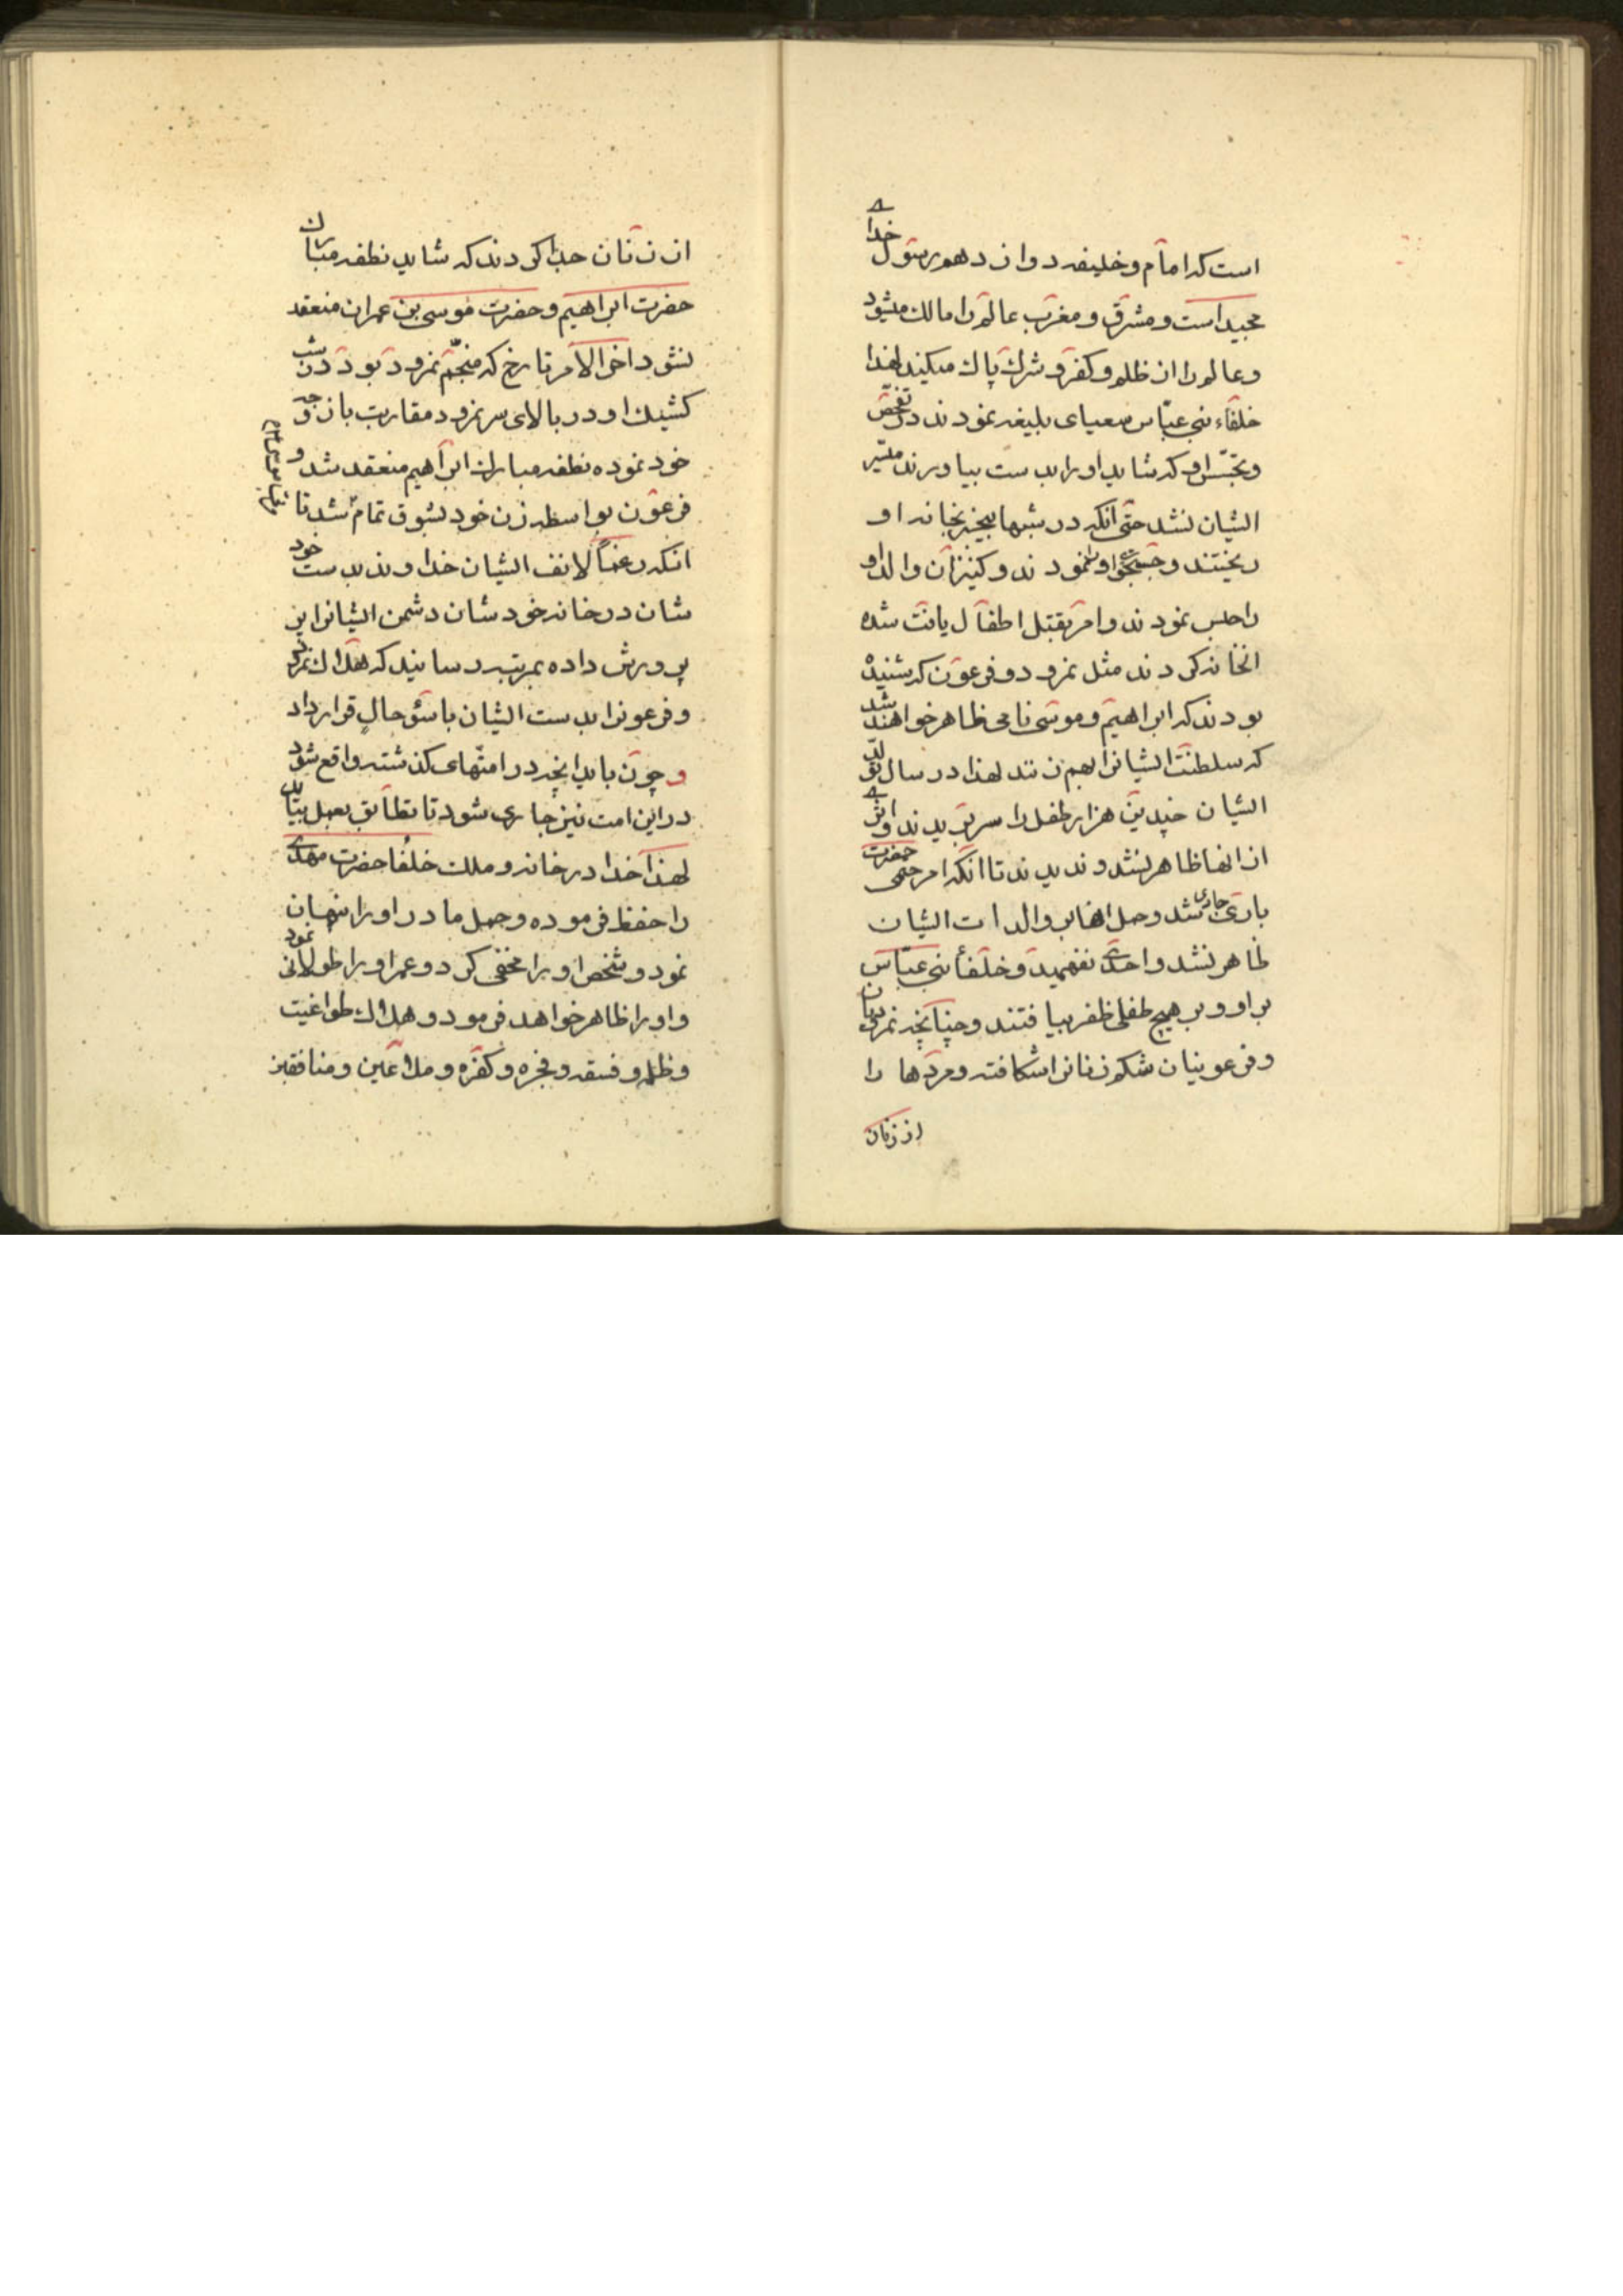 است که امام و خلیفه دوازدهم رسول خدای
مجید است و مشرق و مغرب عالم را مالک میشود
و عالم را از ظلم و کفر و شرک پاک میکنید لهذا
خلفاء بنی عباس سعیهای بلیغه نمودند در تفحّص
و تجسّس او که شاید او را بدست بیاورند میسّر
ایشان نشد حتی آنکه در شبها بیخبر بخانه او
ریختند و جستجوی او را نمودند و کنیزان والد او
را حبس نمودند و امر بقتل اطفال یافت شده
انخانه کردند مثل نمرود و فرعون که شنیده
بودند که ابراهیم و موسی نامی ظاهر خواهند شد
که سلطنت ایشانرا بهم زنند لهذا در سال تولّد
ایشان چندین هزار طفل را سر بریدند و اثری
از انها ظاهر نشد و ندیدند تا انکه امر حتمی حضرت
باری جاری شد و حمل انها بر والدات ایشان
ظاهر نشد و احدی نفهمید و خلفأ بنی عبّاس
بر او و بر هیچ طفلی ظفر نیافتند و چنانچه نمرودیان
و فرعونیان شکم زنانرا شکافته و مردها را
از زنان
از زنان جدا کردند که شاید نطفه مبارک
حضرت ابراهیم و حضرت موسی بن عمران منعقد
نشود اخر الامر تارخ که منجّم نمرود بود در شب
کشیک او در بالای سر نمرود مقاربت با زوجه
خود نموده نطفه مبارک ابراهیم منعقد شد و
فرعون بواسطه زن خود بشوق تمام شد تا
انکه رغماً لانف ایشان خداوند بدست خود
شان در خانه خودشان دشمن ایشانرا این
پرورش داده بمرتبه رسانید که هلاک نمرود
و فرعونرا بدست ایشان باسؤ حال قرار داد
و چون باید انچه در امتهای کذشته واقع شود
در این امت نیز جاری شود تا تطابق بعمل بیاید
لهذا خدا در خانه و ملک خلفا حضرت مهدی
را حفظ فرموده و حمل مادر او را پنهان
نمود و شخص او را مخفی کرد و عمر او را طولانی نمود
و او را ظاهر خواهد فرمود و هلاک طواغیت
و ظلمه و فسقه و فجره و کفره و ملاعین و منافقین